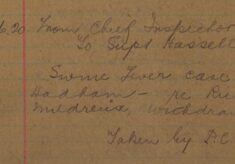 6.20 From Chief Inspector
To Supt Hassell
Swine Fever case
Hadham — re Ric
Mildreux, withdra
Taken by P.C.